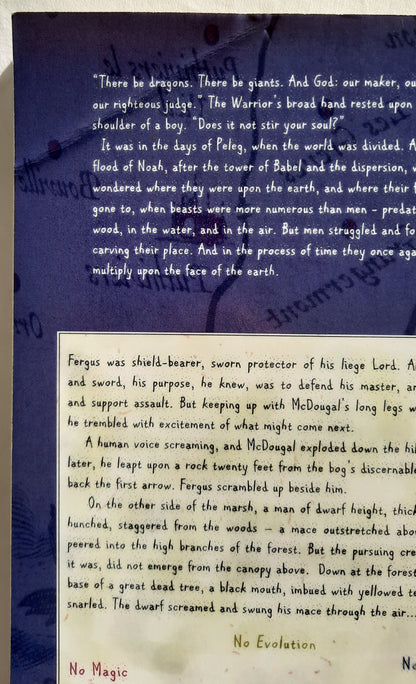 "There be dragons. There be giants. And God: our maker, ou
our righteous judge." The Warrior's broad hand rested upon
shoulder of a boy. "Does it not stir your soul?"
It was in the days of Peleg, when the world was divided. A
flood of Noah, after the tower of Babel and the dispersion, w
wondered where they were upon the earth, and where their
gone to, when beasts were more numerous than men – predat
wood, in the water, and in the air. But men struggled and fo
carving their place. And in the process of time they once aga
multiply upon the face of the earth.
Fergus was shield-bearer, sworn protector of his liege Lord. A
and sword, his purpose, he knew, was to defend his master, an
and support assault. But keeping up with McDougal's long legs w
he trembled with excitement of what might come next.
A human voice screaming, and McDougal exploded down the hil
later, he leapt upon a rock twenty feet from the bog's discernable
back the first arrow. Fergus scrambled up beside him.
On the other side of the marsh, a man of dwarf height, thick
hunched, staggered from the woods – a mace outstretched abov
peered into the high branches of the forest. But the pursuing cre
it was, did not emerge from the canopy above. Down at the forest
base of a great dead tree, a black mouth, imbued with yellowed te
snarled. The dwarf screamed and swung his mace through the air...
No Evolution
No Magic
No